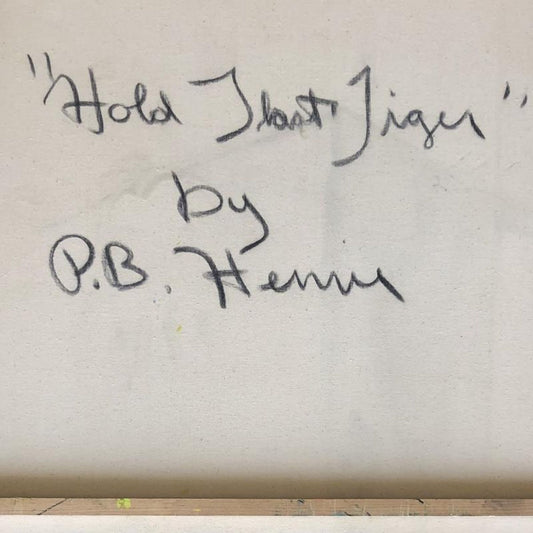 "Hold That Tiger"
by
P.B. Henne